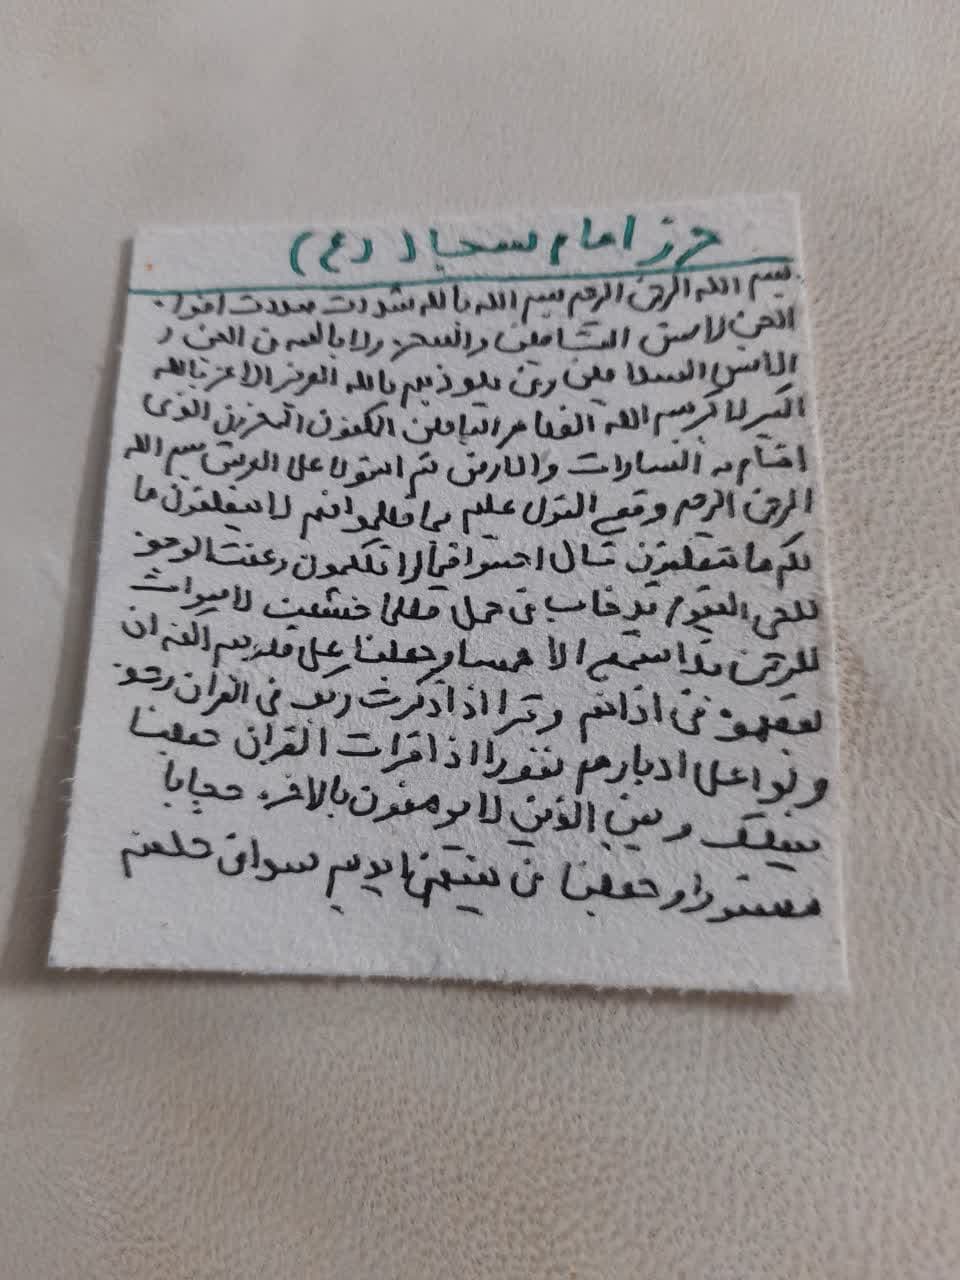 حرز امام سجاد (ع)
بسم الله الرحمن الرحیم بسم الله بالله سددت افواه
الجن لانس الشیاطین والسحره ولابالسه من الجن و
الانس السلاطین ومن یلوذبهم بالله العزیز الاعز بالله
الکبیر لاکبر بسم الله الظاهر الباطن المکنون المخزون الذی
اقام به السماوات والارض ثم استوی علی العرش بسم الله
الرحمن الرحیم ووقع القول علیهم بما ظلموا فهم لا ینطقون ما
لکم ما تنطقون قال اخسوا فیها لا تکلمون وعنت الوجوه
للحی القیوم قد خاب من حمل ظلما خشعت لاصوات
للرحمن فلا تسمع الا همسا وجعلنا علی قلوبهم اکنه ان
یفقهوه فی اذانهم وقرا اذا ذکرت ربک فی القران وحده
ولوا علی ادبارهم نفورا اذا قرات القران جعلنا
بینک وبین الذین لا یومنون بالاخره حجابا
مستورا وجعلنا من بین ایدیهم سدا من خلفهم